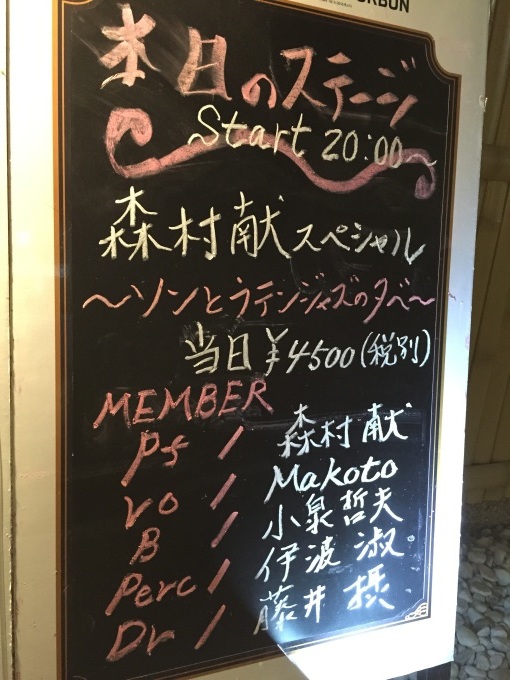 本日のステージ
Start 20:00~
森村献スペシャル
~ソンとラテンジャズの夕べ~
当日¥4500(税別)
MEMBER
Pf / 森村献
Vo / Makoto
B / 小泉哲夫
Perc / 伊波淑
Dr / 藤井摂